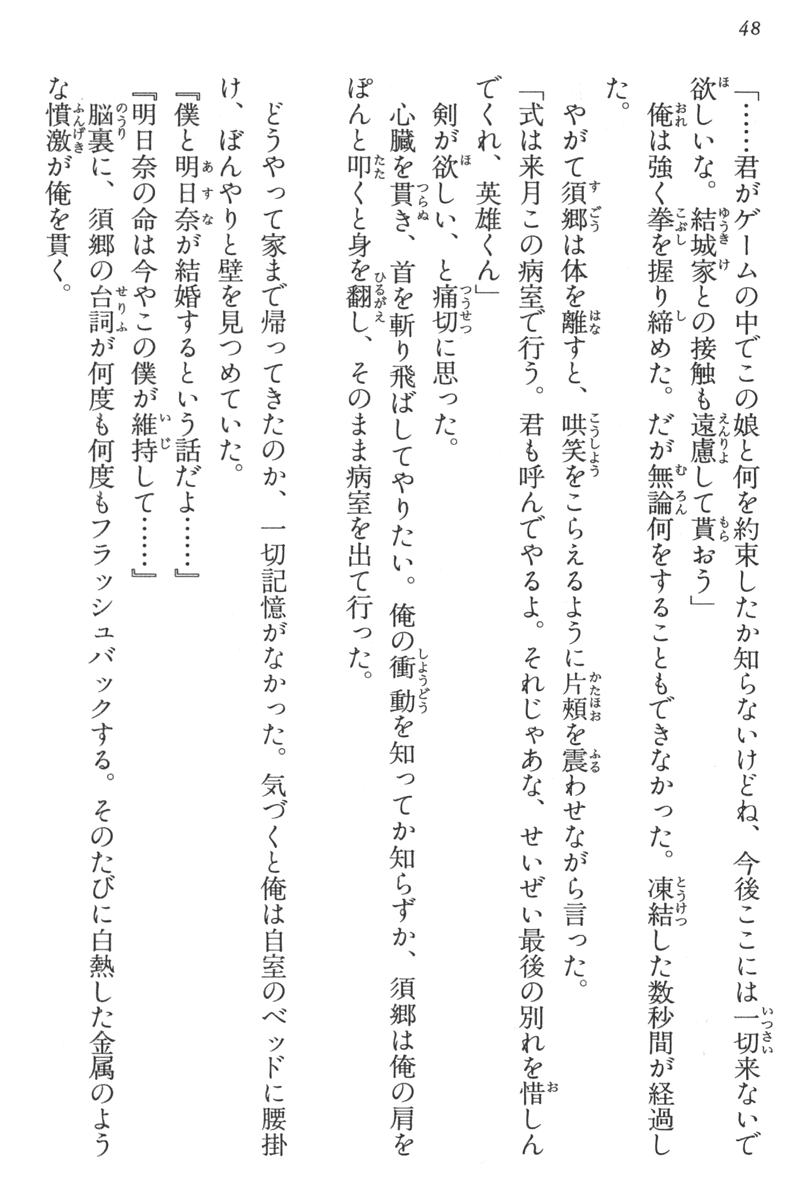 48
「……君がゲームの中でこの娘と何を約束したか知らないけどね、今後ここには一切来ないで
欲しいな。結城家との接触も遠慮して貰おう」
俺は強く拳を握り締めた。だが無論何をすることもできなかった。凍結した数秒間が経過し
た。
やがて須郷は体を離すと、哄笑をこらえるように片頰を震わせながら言った。
「式は来月この病室で行う。君も呼んでやるよ。それじゃあな、せいぜい最後の別れを惜しん
でくれ、英雄くん」
剣が欲しい、と痛切に思った。
心臓を貫き、首を斬り飛ばしてやりたい。俺の衝動を知ってか知らずか、須郷は俺の肩を
ぽんと叩くと身を翻し、そのまま病室を出て行った。
どうやって家まで帰ってきたのか、一切記憶がなかった。気づくと俺は自室のベッドに腰掛
け、ぼんやりと壁を見つめていた。
『僕と明日奈が結婚するという話だよ……』
『明日奈の命は今やこの僕が維持して……』
脳裏に、須郷の台詞が何度も何度もフラッシュバックする。そのたびに白熱した金属のよう
な憤激が俺を貫く。